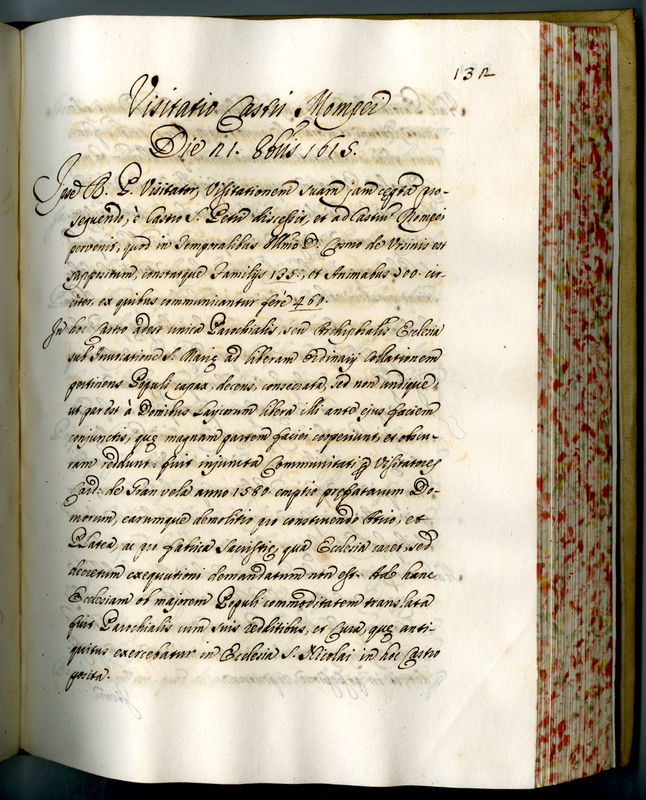 132
Visitatio Castri Mompei
Die 21. 8bris 1615.
Idem R. P. Visitator, Visitationem suam jam ceptam pro-
sequendo, e Castro S. Petri discessit, et ad Castrum Mompei
pervenit, quod in temporalibus Illmo D. Cosmo de Ursinis est
suppositum, constatque familijs 135., et Animabus 700. cir-
citer, ex quibus communicantur ferè 460.
In hoc Castro adest unica Parochialis, seu Archipbalis Ecclesia
sub Invocatione S. Marię ad liberam Ordinarij collationem
pertinens Populi capax, decens, consecrata, sed non undique,
ut par est à Domibus Laycorum libera illi ante ejus faciem
conjunctis, quę magnam partem faciei cooperiunt, et obscu-
ram reddunt. fuit injuncta Communitati p Visitatores
Card. de Gran vela anno 1580. emptio prefatarum Do-
morum, earumque demolitio pro construendo Atrio, et
Platea, ac pro fabrica Sacristię, qua Ecclesia caret, sed
decretum exequutioni demandatum non est. Ad hanc
Ecclesiam ob majorem Populi commoditatem translata
fuit Parochialis cum suis redditibus, et Cura, quę anti-
quitus exercebatur in Ecclesia S. Nicolai in hoc Castro
posita.